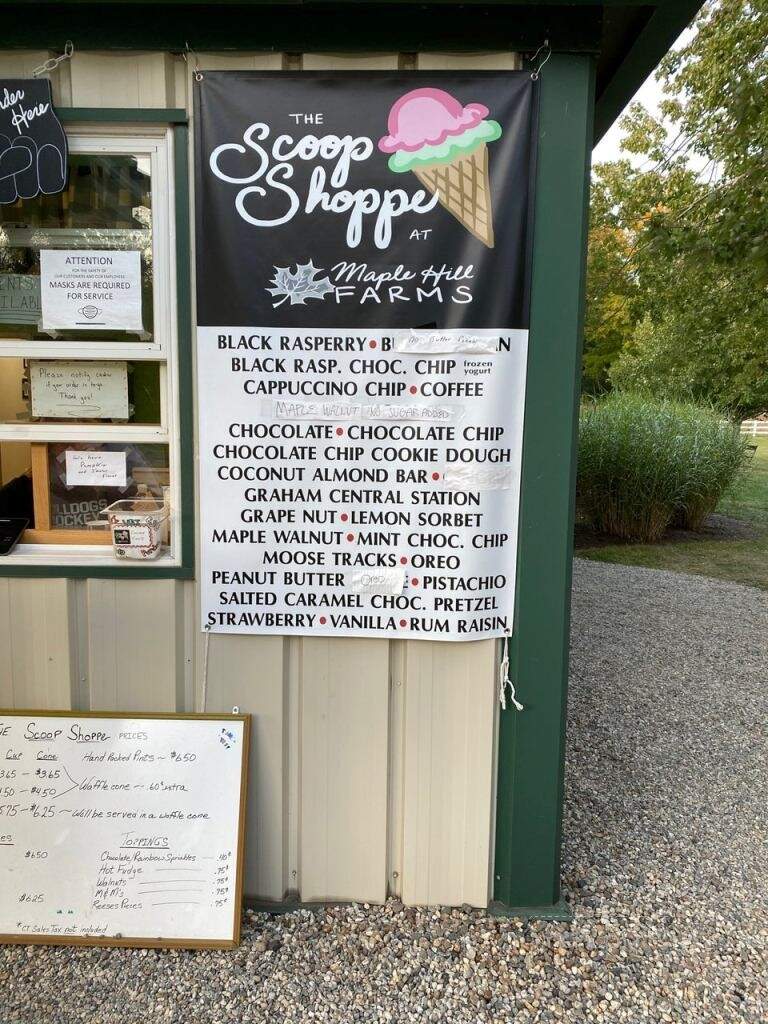 der
Here
ATTENTION
FOR THE SAFETY OF
OUR CUSTOMERS AND OUR EMPLOYEES
MASKS ARE REQUIRED
FOR SERVICE
Please notify
if your order is to go
Thank you!
We have
Pumpkin
and
LLDOGS
OCKEY
THE
Scoop
Shoppe
AT
Maple Hill
FARMS
BLACK RASPERRY • B N
BLACK RASP. CHOC. CHIP frozen yogurt
CAPPUCCINO CHIP • COFFEE
MAPLE WALNUT NO SUGAR ADDED
CHOCOLATE • CHOCOLATE CHIP
CHOCOLATE CHIP COOKIE DOUGH
COCONUT ALMOND BAR •
GRAHAM CENTRAL STATION
GRAPE NUT • LEMON SORBET
MAPLE WALNUT • MINT CHOC. CHIP
MOOSE TRACKS • OREO
PEANUT BUTTER • PISTACHIO
SALTED CARAMEL CHOC. PRETZEL
STRAWBERRY • VANILLA • RUM RAISIN
E SCOOP SHOPPE PRICES
Cup Cone Hand Packed Pints ~ $6.50
3.65 - $3.65
.50 - $4.50 Waffle cone - .60¢ extra
5.75 - $6.25 ~ Will be served in a waffle cone
es
$6.50
$6.25
TOPPINGS
Chocolate/Rainbow Sprinkles .40¢
Hot Fudge .75¢
Walnuts .75¢
M&M's .75¢
Reeses Pieces .75¢
*CT Sales Tax not included